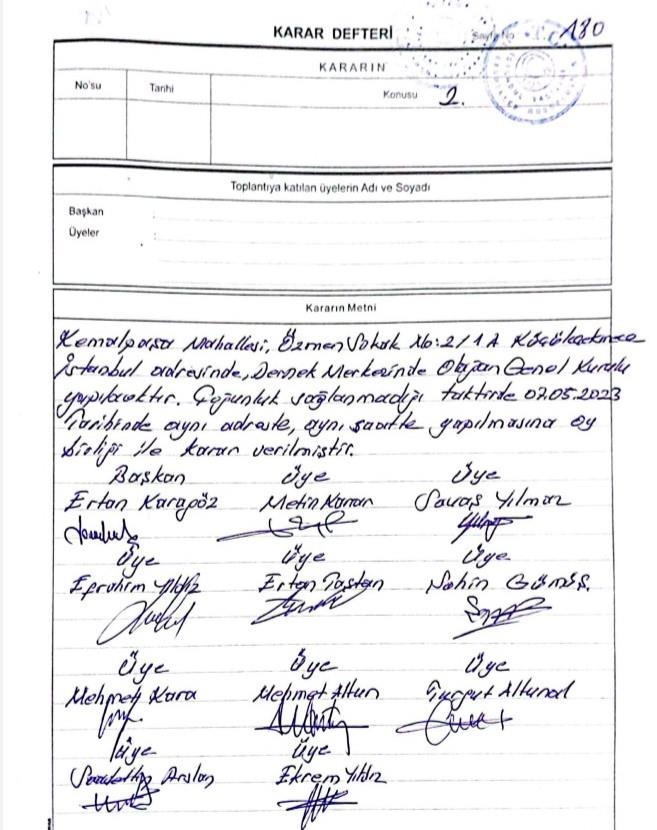 KARAR DEFTERİ
Sayfa No 180
KARARIN
No'su
Tarihi
Konusu 2.
Toplantıya katılan üyelerin Adı ve Soyadı
Başkan :
Üyeler :
Kararın Metni
Kemalpaşa Mahallesi, Özmen Sokak No:2/1A Küçükçekmece
İstanbul adresinde, Dernek Merkezinde Olağan Genel Kurulu
yapılacaktır. Çoğunluk sağlanmadığı taktirde 07.05.2023
Tarihinde aynı adreste, aynı saatte yapılmasına oy
birliği ile karar verilmiştir.
Başkan Üye Üye
Ertan Karagöz Metin Kanan Savaş Yılmaz
Üye Üye Üye
Efrahim Yıldız Ertan Taştan Şahin Gümüş.
Üye Üye Üye
Mehmet Kara Mehmet Altun Turgut Altunal
Üye Üye
Arslan Ekrem Yıldız